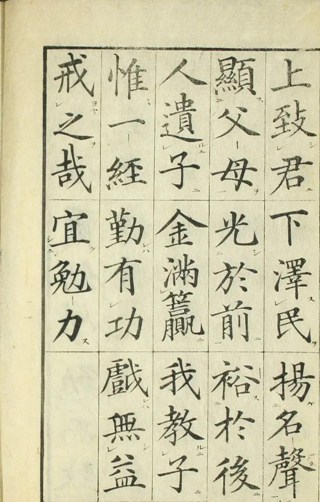 上致君下澤民揚名聲
顯父母光於前裕於後
人遺子金滿籯我教子
惟一經勤有功戲無益
戒之哉宜勉力